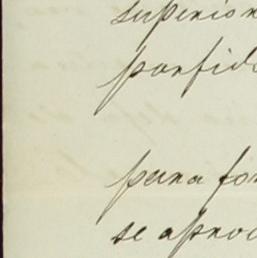 superior
porfid
para for
se aprov